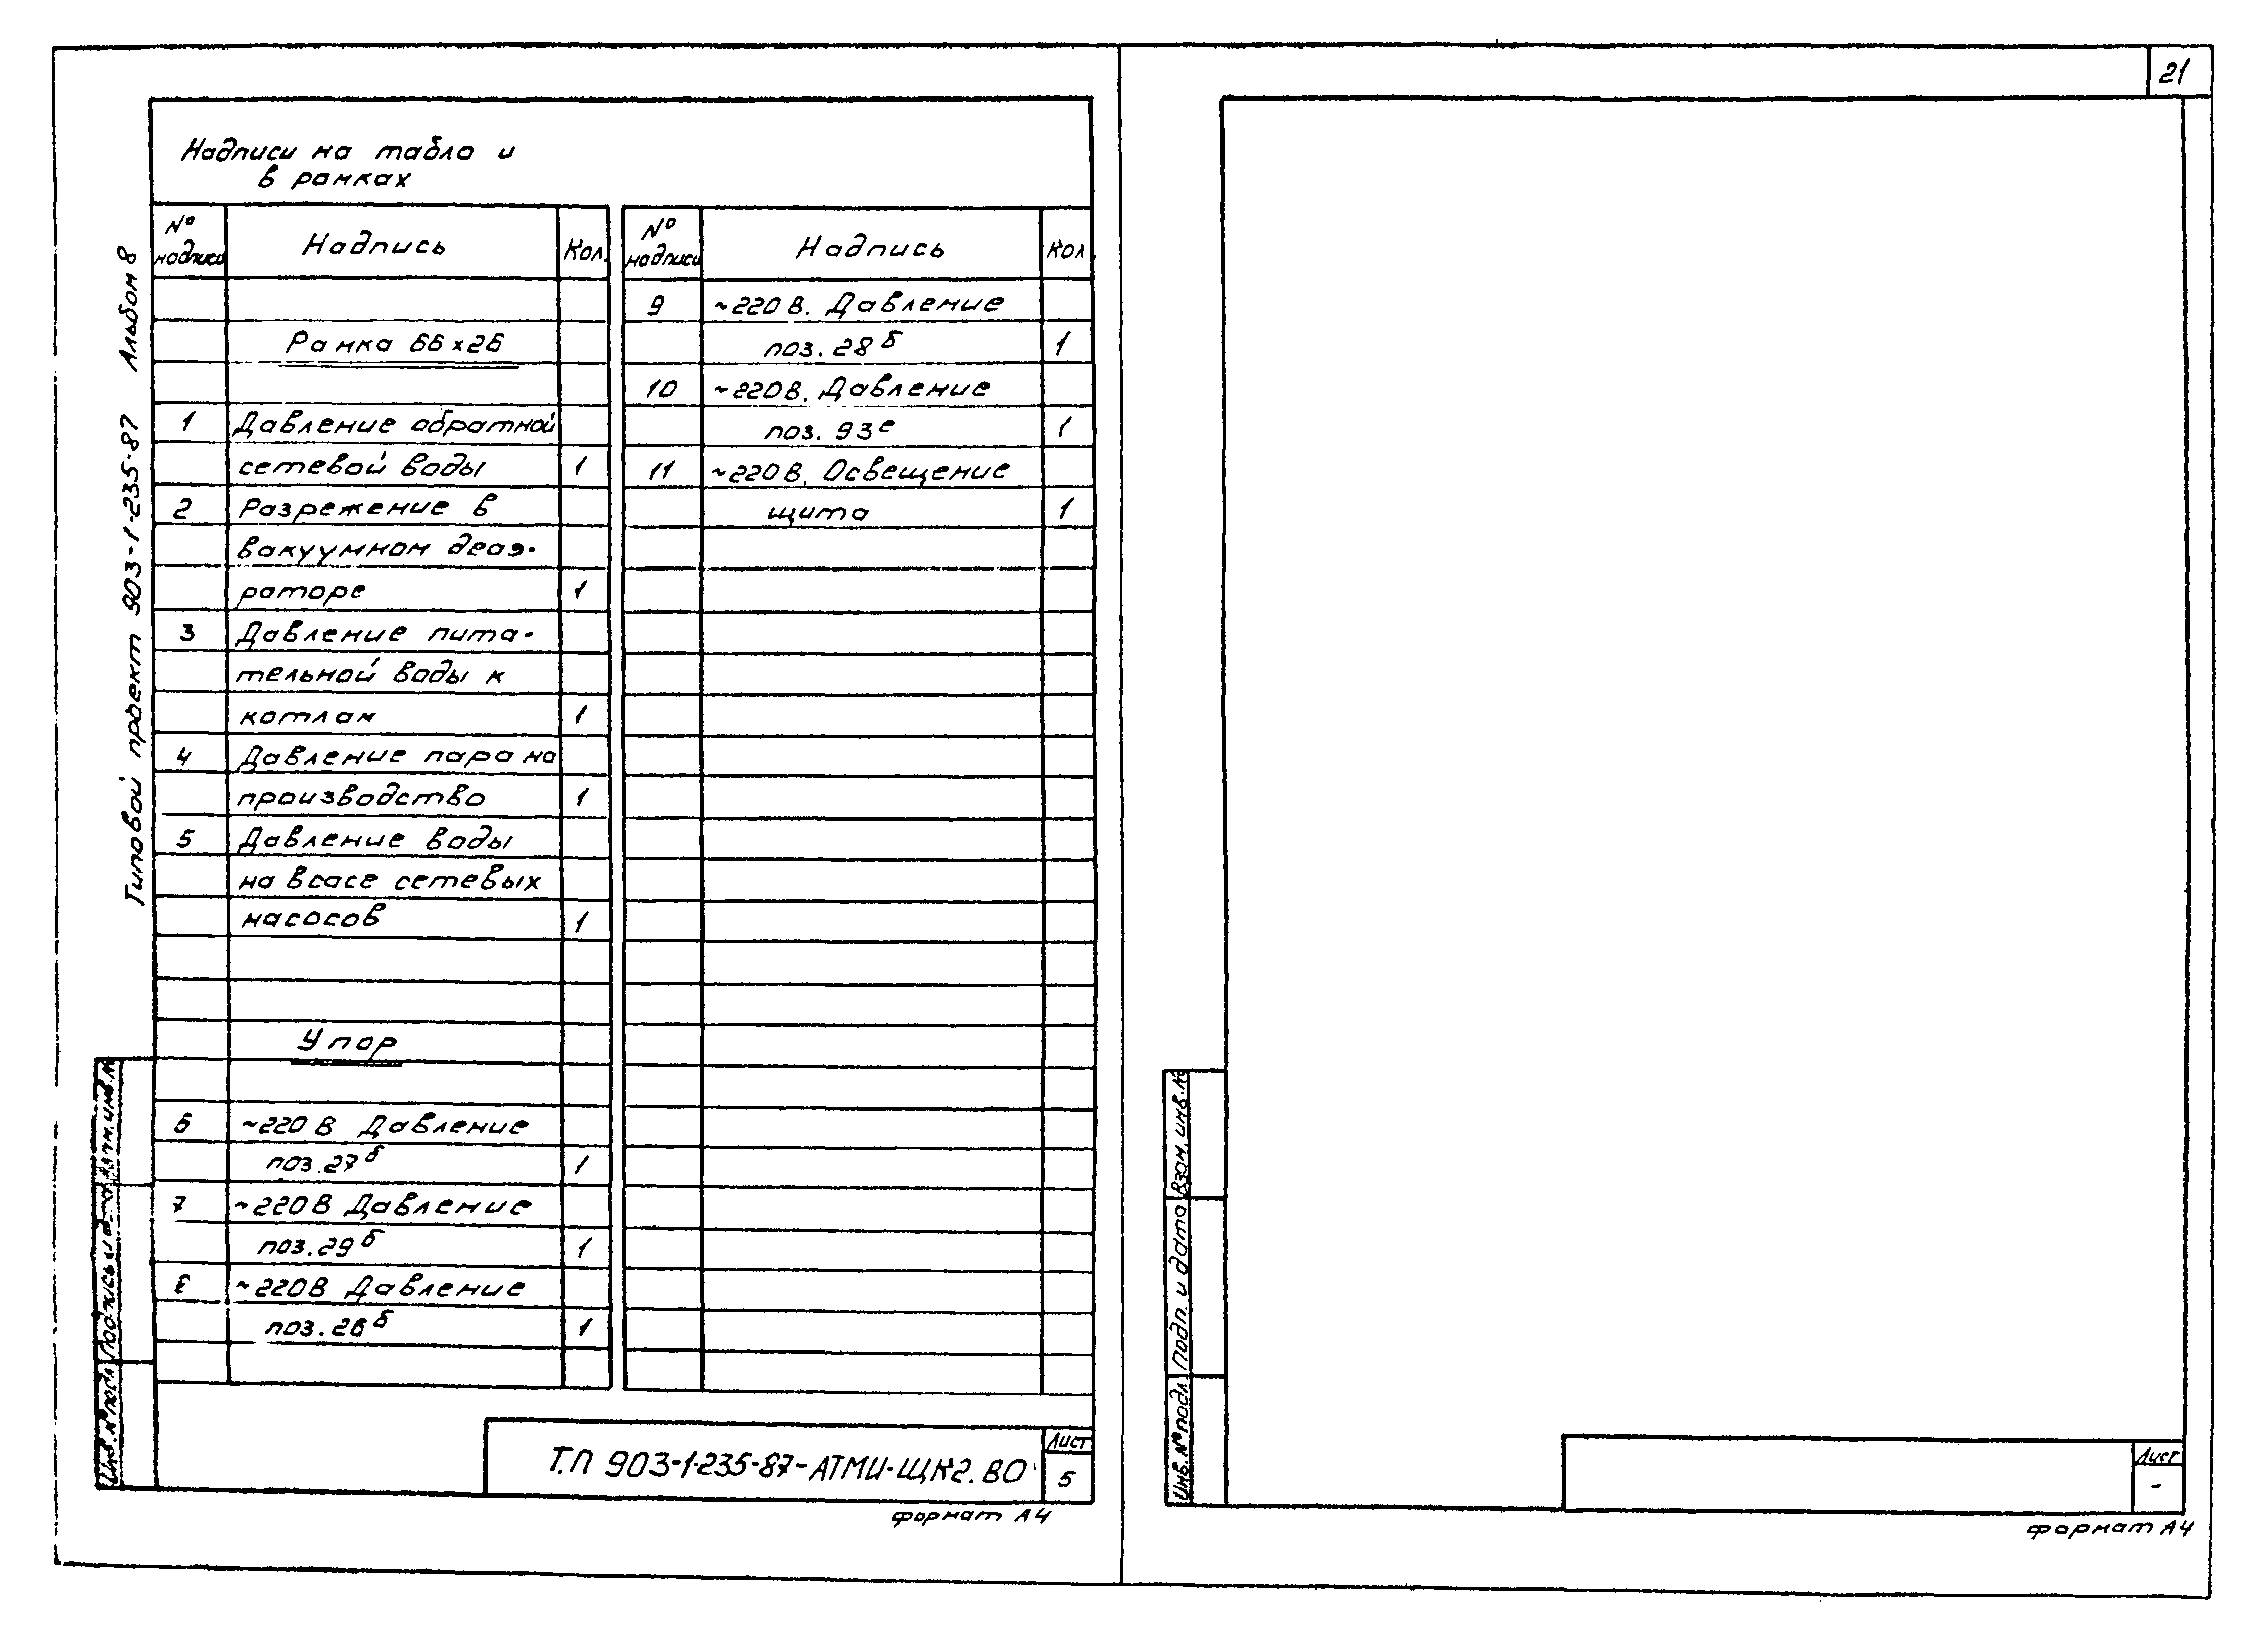 21
Типовой проект 903-1-235-87 Альбом 8
Надписи на табло и
в рамках
№ надписи Надпись Кол.
Рамка 66×26
1 Давление обратной
сетевой воды 1
2 Разрежение в
вакуумном деаэ-
раторе 1
3 Давление пита-
тельной воды к
котлам 1
4 Давление пара на
производство 1
5 Давление воды
на всасе сетевых
насосов 1
Упор
6 ~220 В Давление
поз.27б 1
7 ~220 В Давление
поз.29б 1
~220 В Давление
поз.26б 1
№ надписи Надпись Кол.
9 ~220 В. Давление
поз.28б 1
10 ~220 В. Давление
поз. 93е 1
11 ~220 В. Освещение
щита 1
Инв.№подл Подпись и дата Взам.инв.№
Т.П 903-1-235-87-АТМИ-ЩК2.ВО
Лист
5
формат А4
Инв.№подл. Подп. и дата Взам.инв.№
Лист
-
формат А4